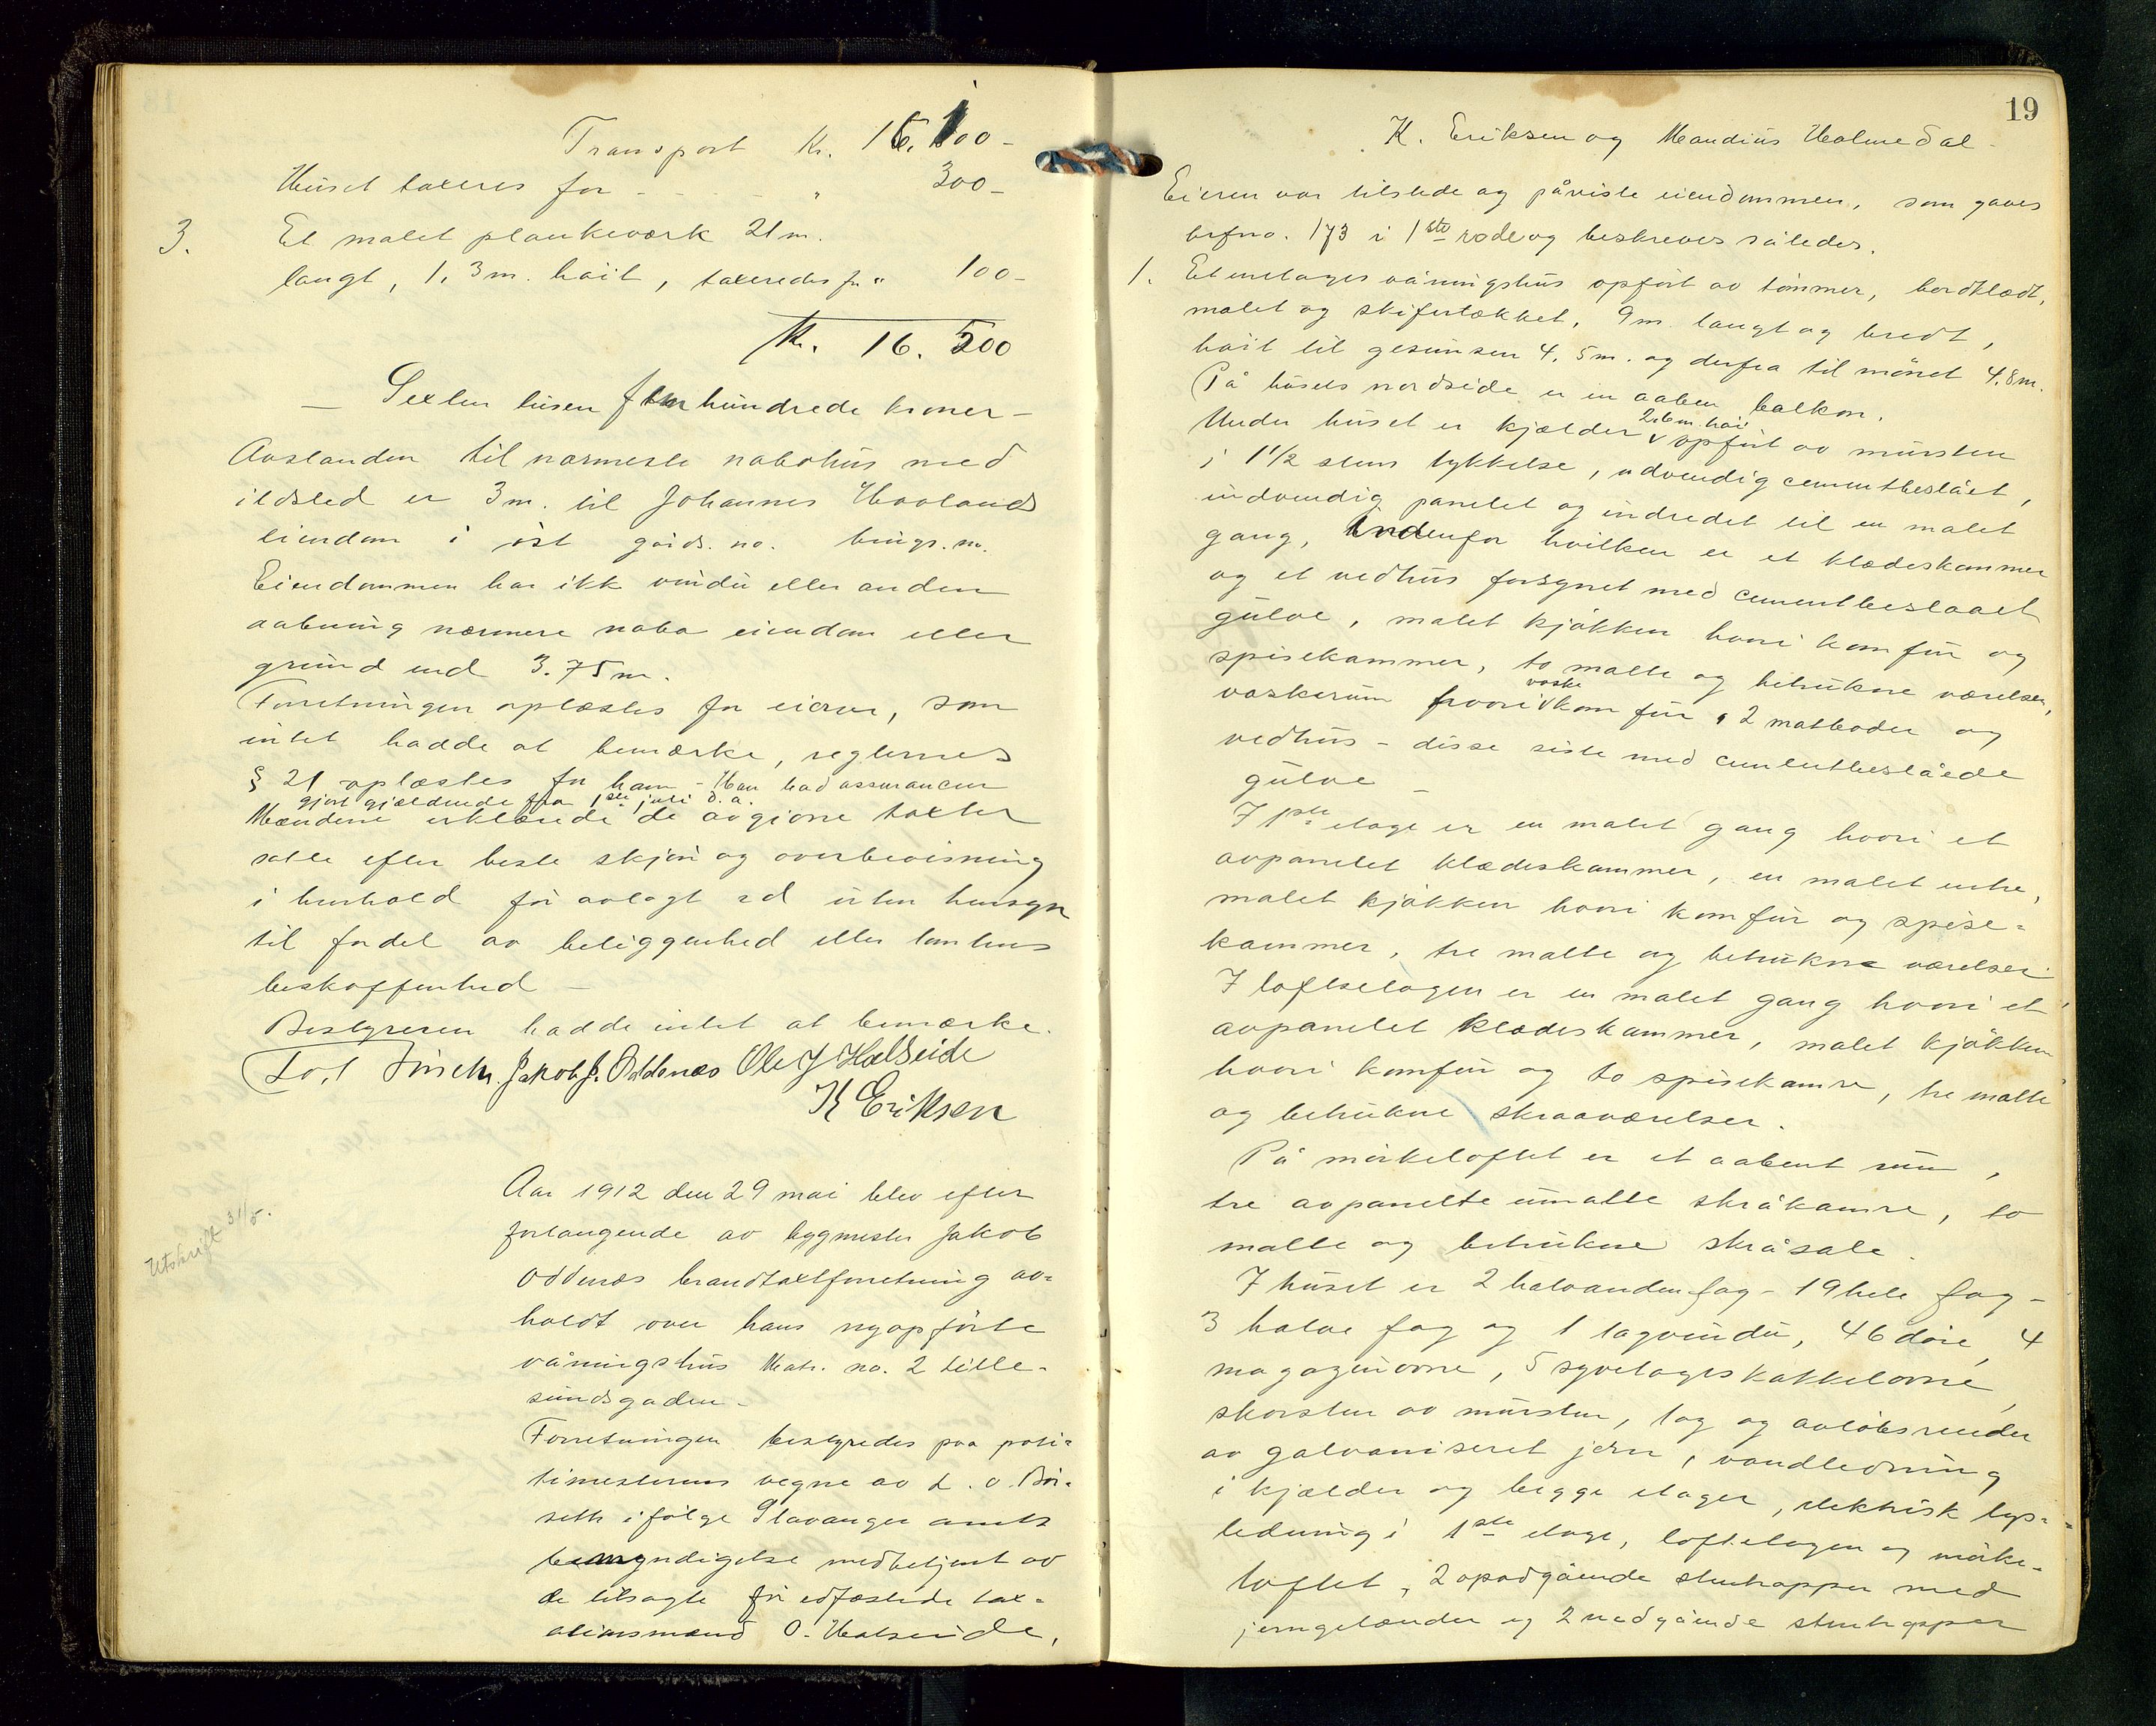 Transport Kr. 16.100-
Huset taxeres for - - - " 300-
3. Et malet plankeværk 21 m.
langt, 1,3 m. høit, taxeredes for " 100-
Kr. 16.500
- Sexten tusen fem hundrede kroner -
Avstanden til nærmeste nabohus med
ildsted er 3 m. til Johannes Hovlands
eiendom i øst gårds.no. brugs.no.
Eiendommen har ikk vindu eller anden
aabning nærmere nabo eiendom eller
grund end 3.75 m.
Forretningen oplæstes for eieren, som
intet hadde at bemærke, reglernes
§ 21 oplæstes for ham - Han bad assurancen
gjort gjældende fra 1ste juli d.a.
Mændene erklærede de avgivne taxter
satte efter beste skjøn og overbevisning
i henhold før avlagt ed uten hensyn
til fordel av beliggenhed eller tomtens
beskaffenhed -
Bestyreren hadde intet at bemærke.
Jakob J. Oddenæs Ole J Halseide
K Eriksen
Utskrift 31/5.
Aar 1912 den 29 mai blev efter
forlangende av bygmester Jakob
Oddenæs brandtaxtforretning av=
holdt over hans nyopførte
våningshus Matr. no. 2 Lille=
sundsgaden -
Forretningen bestyredes paa poli=
timesterens vegne av L. O. Bør=
seth ifølge Stavanger amts
bemyndigelse medbetjent av
de tilsagte før edfæstede tax=
ationsmænd O. Halseide,
19
K. Eriksen og Mandius Holmedal -
Eieren var tilstede og påviste eiendommen, som gaves
brfno. 173 i 1ste rode og beskreves således.
1. Et enetages våningshus opført av tømmer, bordklædt,
malet og skifertækket, 9 m. langt og bredt,
høit til gesimsen 4,5 m. og derfra til mønet 4.8 m.
På husets nordside er en aaben balkon.
2.6 m. høi
Under huset er kjælder opført av mursten
i 1 1/2 stens tykkelse, udvendig cementbeslået,
indvendig panelet og indredet til en malet
gang, indenfor hvilken er et klædeskammer
og et vedhus forsynet med cementbeslaaet
gulve, malet kjøkken hvori komfur og
spisekammer, to malte og betrukne værelser,
vaske
vaskerum hvori komfur, 2 matboder og
vedhus - disse siste med cementbeslåede
gulve -
I 1ste etage er en malet gang hvori et
avpanelet klædeskammer, en malet entre,
malet kjøkken hvori komfur og spise=
kammer, tre malte og betrukne værelser.
I loftsetagen er en malet gang hvori et
avpanelet klædeskammer, malet kjøkken
hvori komfur og to spisekamre, tre malte
og betrukne skraaværelser.
På mørkeloftet er et aabent rum,
tre avpanelte umalte skråkamre, to
malte og betrukne skråsale.
I huset er 2 halvanden fag - 19 hele fag -
3 halve fag og 1 tagvindu, 46 døre, 4
magazinovne, 5 syvetages kakkelovne,
skorsten av mursten, tag og avløbsrender
av galvaniseret jern, vandledning
i kjælder og begge etager, elektrisk lys=
ledning i 1ste etage, loftetagen og mørke=
loftet, 2 opadgående stentrapper med
jerngelænder og 2 nedgående stentrapper